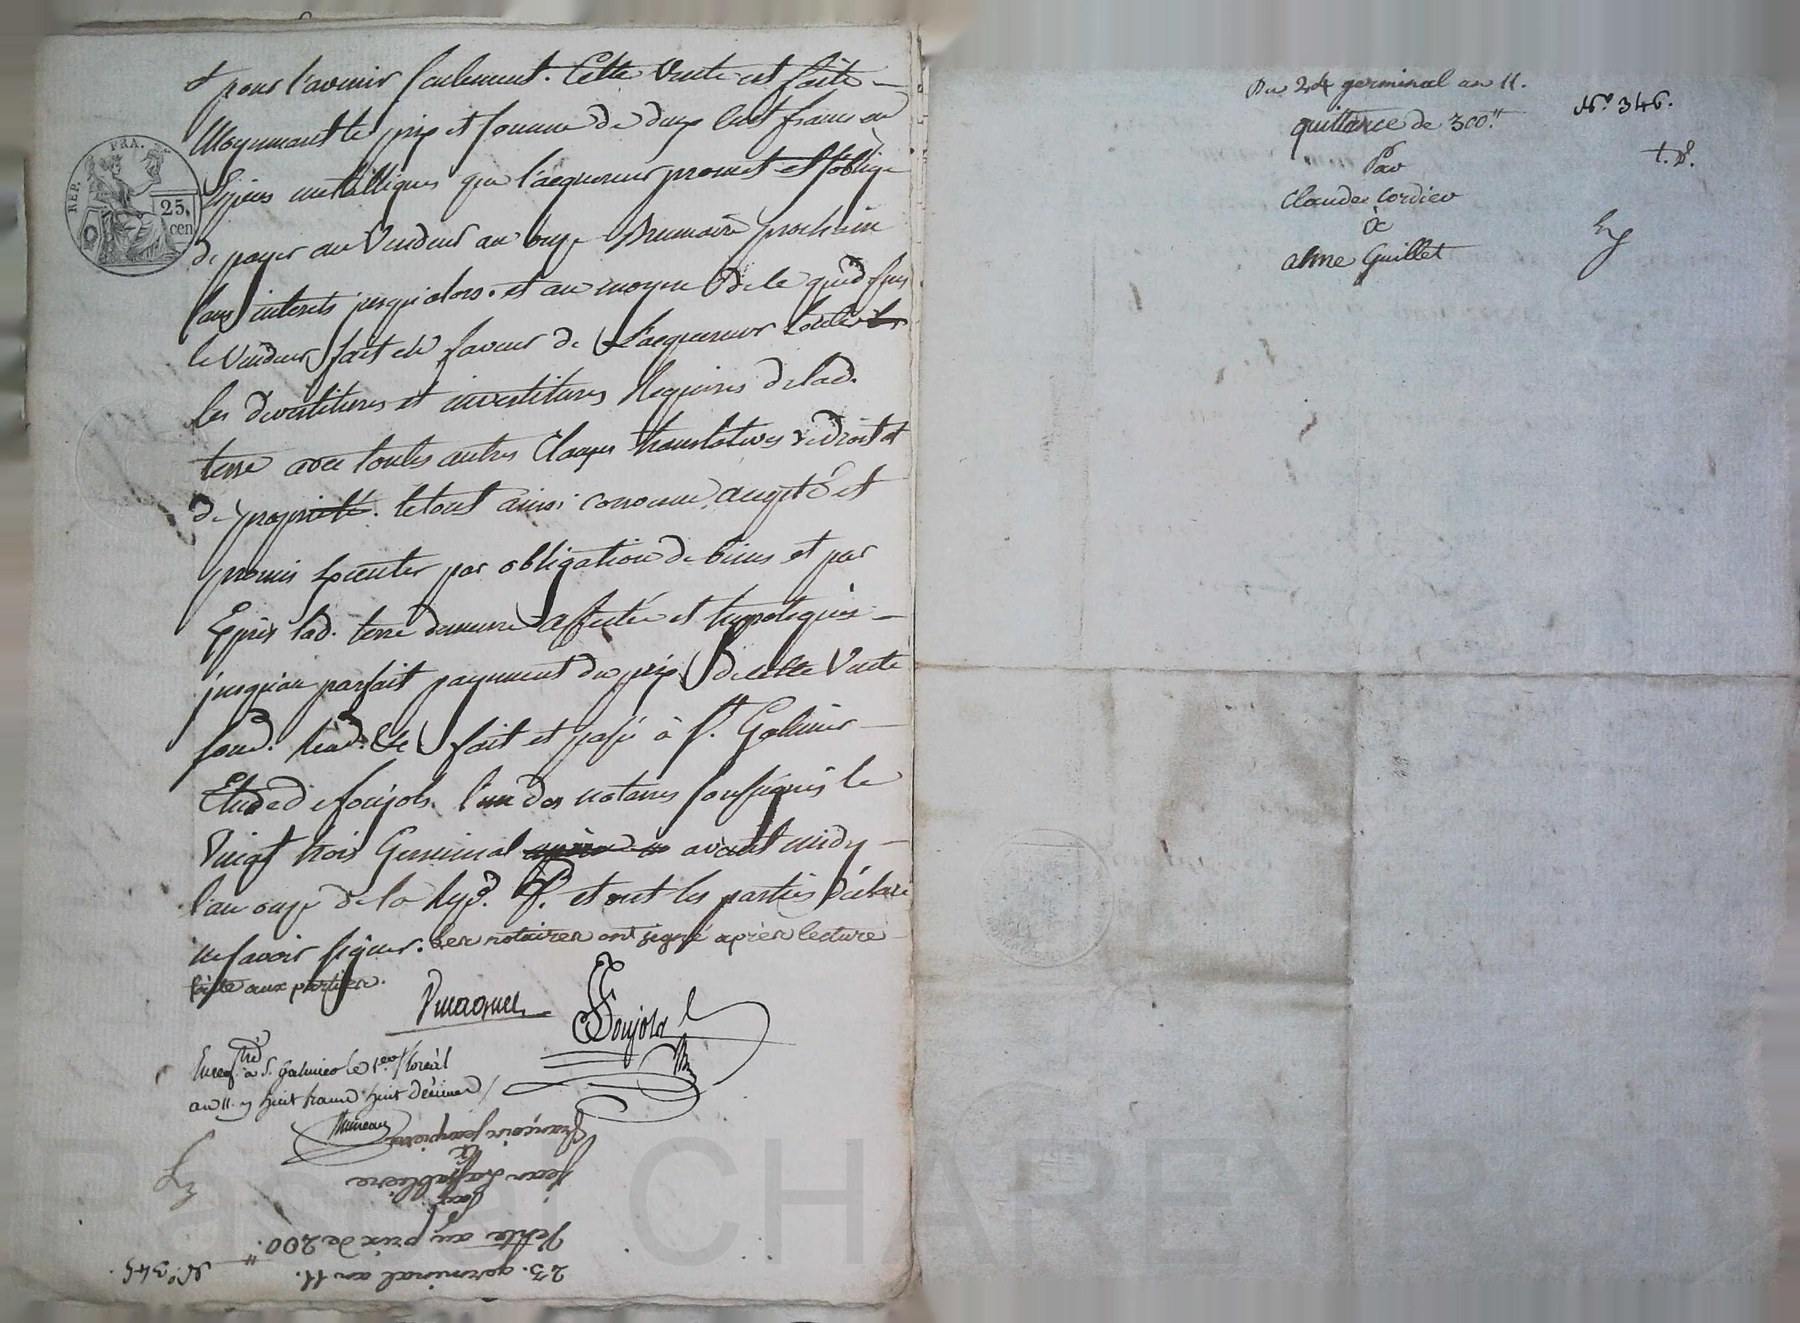 & pour l'avenir seulement. Cette Vente est faite
Moyennant le prix et somme de deux Cent francs en
Espèces métalliques que l'acquereur promet et s'oblige
de payer au Vendeur au onze Brumaire prochain
sans interets jusqu'alors. et au moyen de ce que dessus
le Vendeur fait en faveur de L'acquereur toutes
les devestitures et investitures Requises de lad.
terre avec toutes autres Clauses translatives de droit et
de propriété. le tout ainsi convenu, accepté et
promis Executer par obligation de biens et par
Exprès lad. terre demeure affectée et hypotequée
jusqu'au parfait payement du prix de cette Vente
soud. Read. &c fait et passé à St. Galmier
Etude de Soujols l'un des notaires soussignés le
Vingt trois Germinal avant midy
l'an onze de la Rep. f. et ont les parties déclaré
ne savoir signer. Les notaires ont signé après lecture
faite aux parties.
Soujols
Enregtré à S. Galmier le 1er floréal
an 11. huit francs huit décimes
REP. FRA.
25. cen
23. germinal an 11.
N.° 345.
Vente au prix de 200.
Par
Jean
à
François Jeanpierre
Du 24 germinal an 11.
N.° 346.
quittance de 300.
t. d.
Par
Claude Cordier
à
Guillet
Pascal CHAREYRON